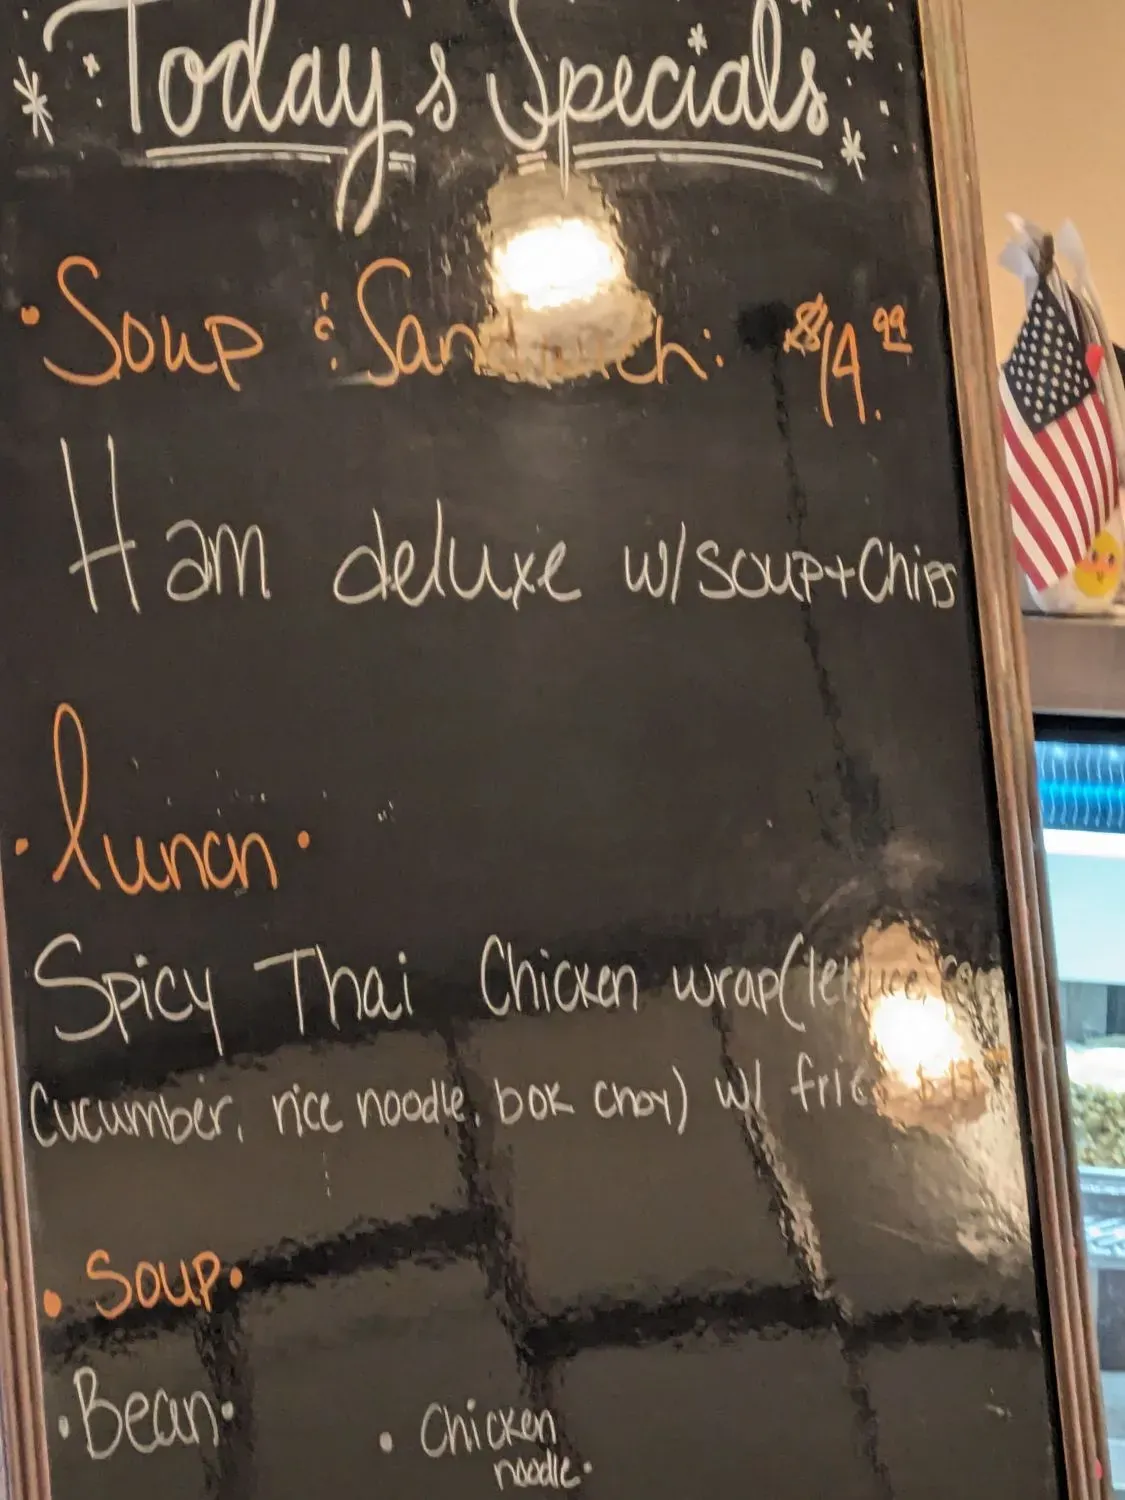 Today's Specials
• Soup & Sandwich: $14.99
Ham deluxe w/ soup + Chips
• lunch •
Spicy Thai Chicken wrap (lettuce,
Cucumber, rice noodle, bok choy) w/
• Soup •
• Bean • • Chicken
noodle •